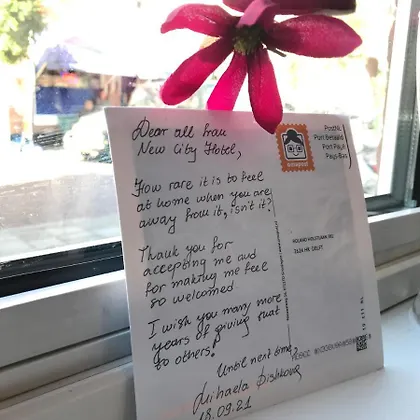 Dear all from
New City Hotel,
How rare it is to feel
at home when you are
away from it, isn't it?
Thank you for
accepting me and
for making me feel
so welcomed
I wish you many more
years of giving that
to others!
Until next time,
Mihaela Dishkova
18.09.21
PostNL
Port Betaald
Port Payé
Pays-Bas
ROLAND HOLSTLAAN 802
2624 HK DELFT